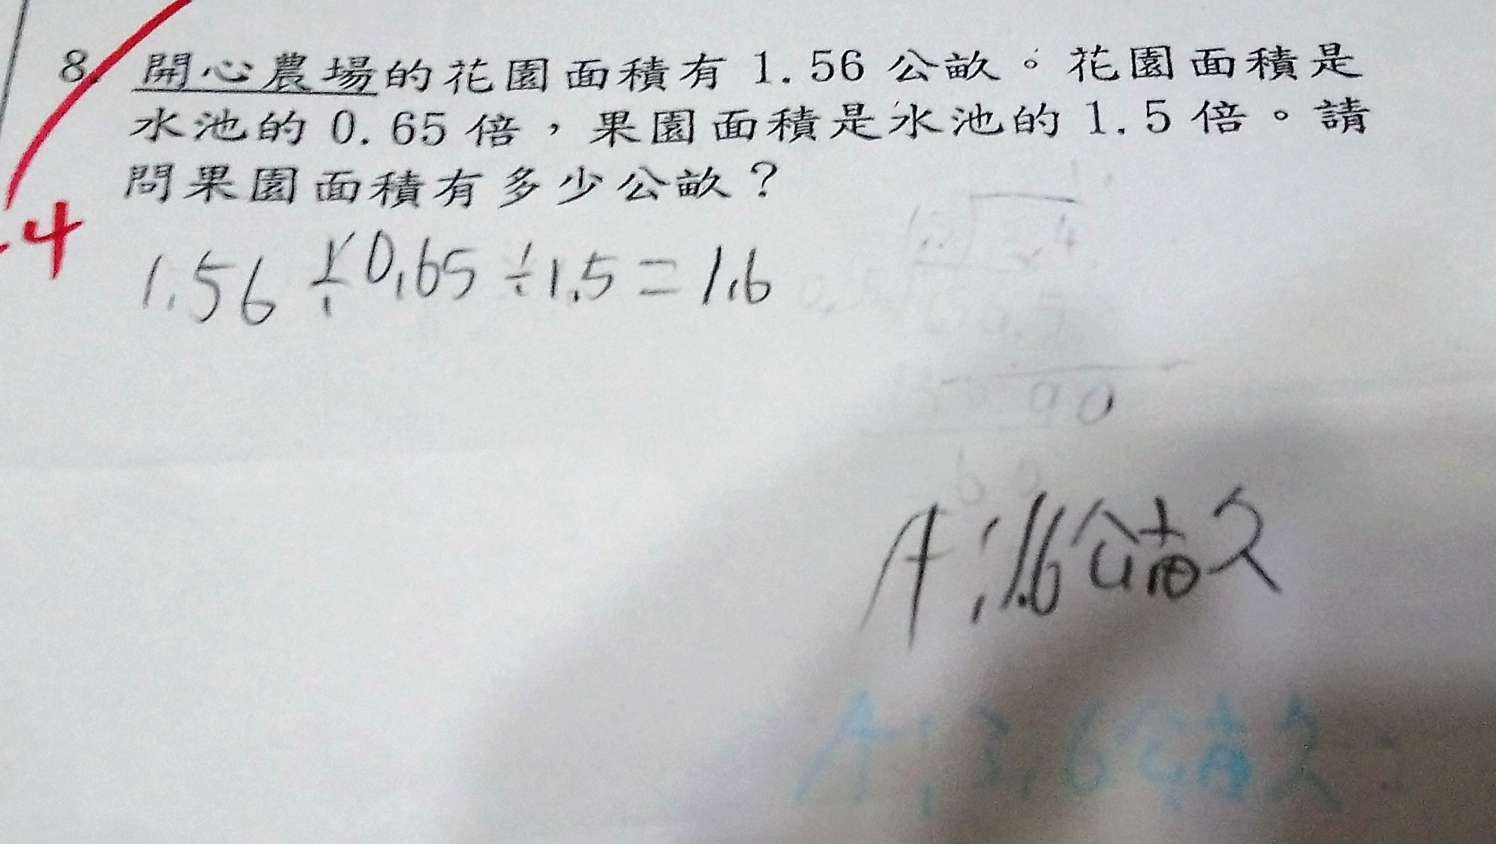 8. 開心農場的花園面積有 1.56 公畝。花園面積是
水池的 0.65 倍，果園面積是水池的 1.5 倍。請
問果園面積有多少公畝？
-4
1.56 ÷ 0.65 ÷ 1.5 = 1.6
A：1.6公畝
A：3.6公畝